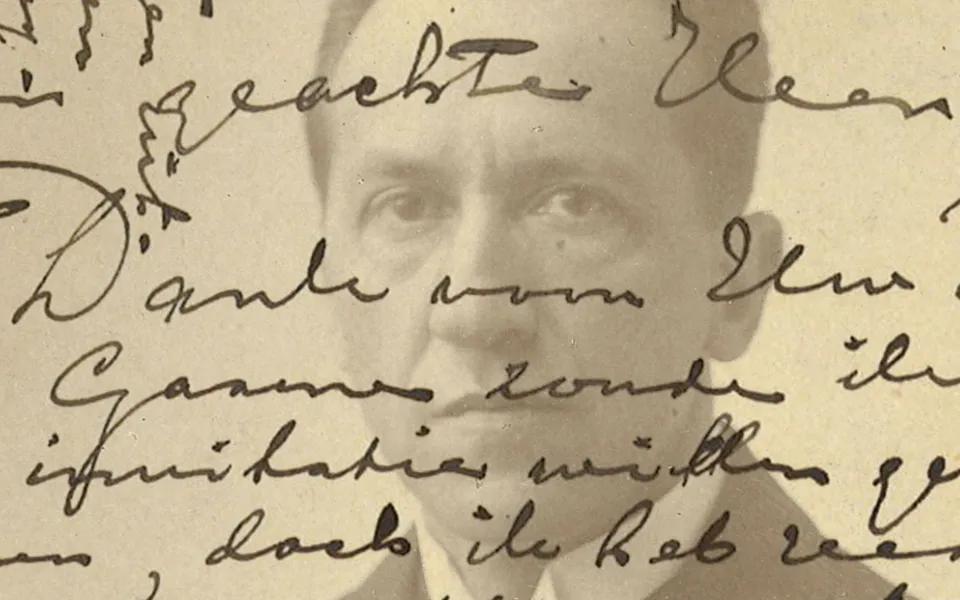 geachte Heer
Dank voor Uw
Gaarne zoude ik
invitatie willen ge
en, doch ik heb ree